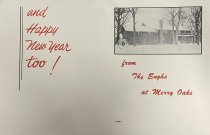 and
Happy
New Year
too!
from
The Enghs
at Merry Oaks